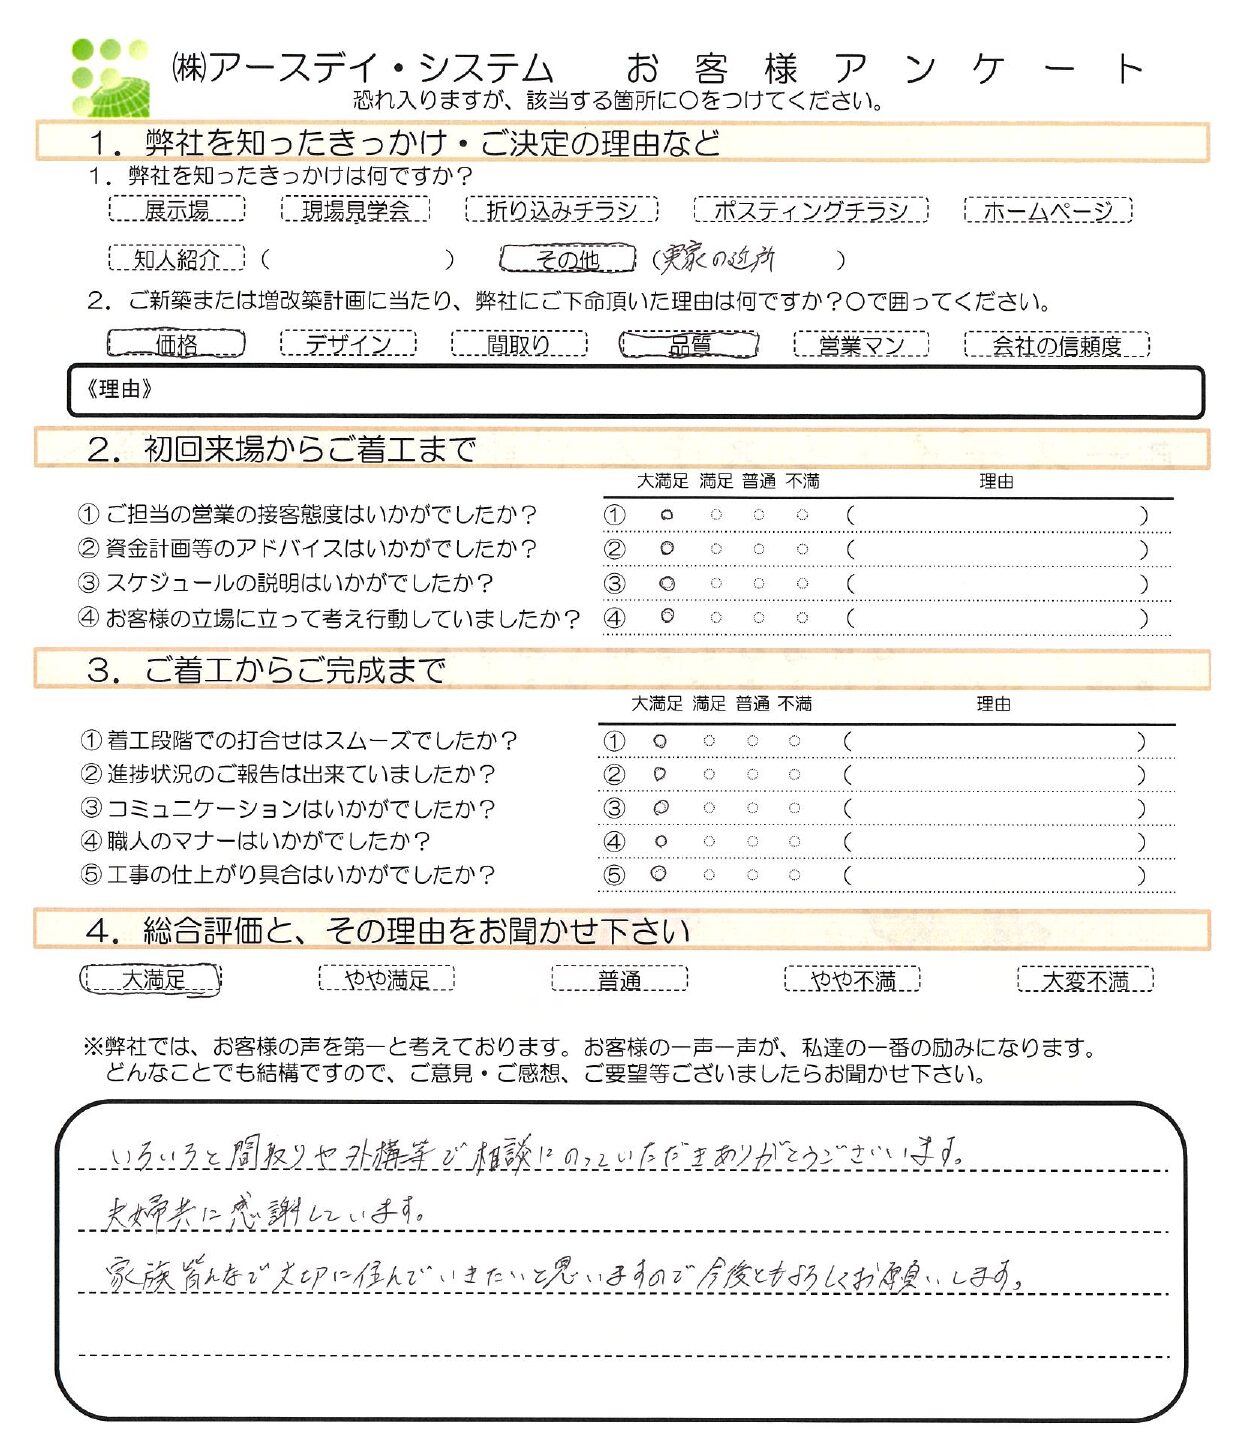 ㈱アースデイ・システム　お客様アンケート
恐れ入りますが、該当する箇所に〇をつけてください。
１．弊社を知ったきっかけ・ご決定の理由など
１．弊社を知ったきっかけは何ですか？
展示場　現場見学会　折り込みチラシ　ポスティングチラシ　ホームページ
知人紹介（　　　）　その他（実家の近所　）
２．ご新築または増改築計画に当たり、弊社にご下命頂いた理由は何ですか？〇で囲ってください。
価格　デザイン　間取り　品質　営業マン　会社の信頼度
《理由》
２．初回来場からご着工まで
大満足　満足　普通　不満　理由
①ご担当の営業の接客態度はいかがでしたか？　①（　　　）
②資金計画等のアドバイスはいかがでしたか？　②（　　　）
③スケジュールの説明はいかがでしたか？　③（　　　）
④お客様の立場に立って考え行動していましたか？　④（　　　）
３．ご着工からご完成まで
大満足　満足　普通　不満　理由
①着工段階での打合せはスムーズでしたか？　①（　　　）
②進捗状況のご報告は出来ていましたか？　②（　　　）
③コミュニケーションはいかがでしたか？　③（　　　）
④職人のマナーはいかがでしたか？　④（　　　）
⑤工事の仕上がり具合はいかがでしたか？　⑤（　　　）
４．総合評価と、その理由をお聞かせ下さい
大満足　やや満足　普通　やや不満　大変不満
※弊社では、お客様の声を第一と考えております。お客様の一声一声が、私達の一番の励みになります。
どんなことでも結構ですので、ご意見・ご感想、ご要望等ございましたらお聞かせ下さい。
いろいろと間取りや外構等で相談にのっていただきありがとうございます。
夫婦共に感謝しています。
家族皆んなで大切に住んでいきたいと思いますので今後ともよろしくお願いします。